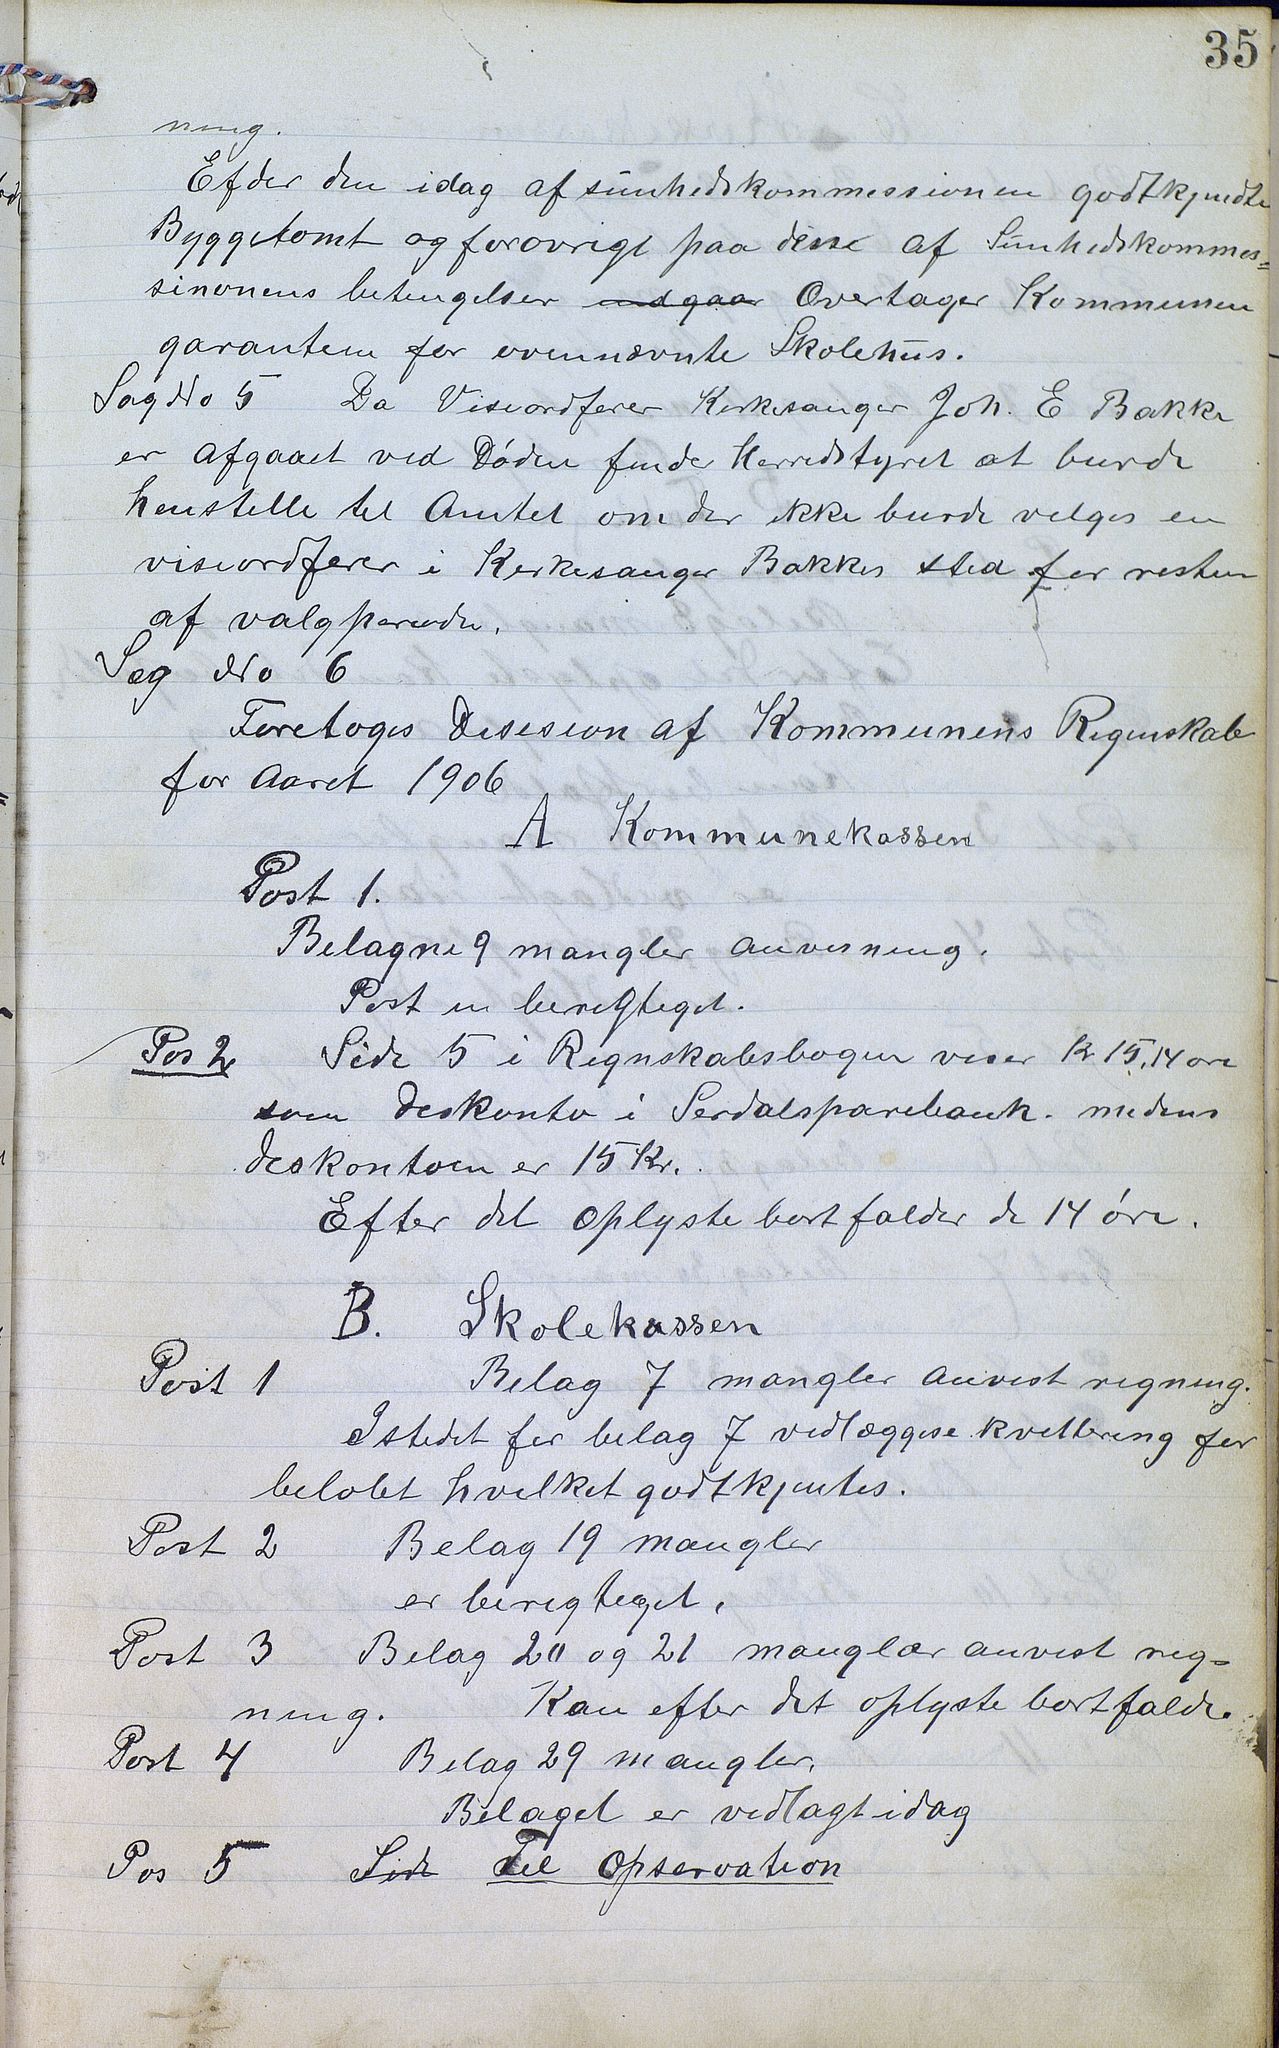 35
ning.
Efder den idag af sunhedskommessionen godtkjendte
Byggetomt og forøvrigt paa disse af Sunhedskommes=
sinonens betengelser indgaar Overtager Kommunen
garantien for ovennævnte Skolehus.
Sag No 5 Da Viseordfører Kirkesanger Joh. E Bakke
er afgaaet ved Døden finder Herredstyret at burde
henstelle til Amtet om der ikke burde velges en
viseordfører i Kirkesanger Bakkes sted for resten
af valgperiode.
Sag No 6
Foretoges Desesion af Kommunens Regnskab
for Aaret 1906
A Kommunekassen
Post 1.
Belagne 9 mangler anvisning.
Post en berigtiget.
Pos 2 Side 5 i Regnskabsbogen viser Kr 15,14 øre
som Deskonto i Serdalsparebank. medens
deskontoen er 15 Kr.
Efter det oplyste bortfalder de 14 øre.
B. Skolekassen
Post 1 Belag 7 mangler anvist regning.
Istedet for belag 7 vedlægges kvittering for
beløbet hvilket godtkjentes.
Post 2 Belag 19 mangler
er berigtiget.
Post 3 Belag 20 og 21 manglær anvist reg=
ning. Kan efter det oplyste bortfalde.
Post 4 Belag 29 mangler.
Belaget er vedlagt idag
Pos 5 Side Til Opservation